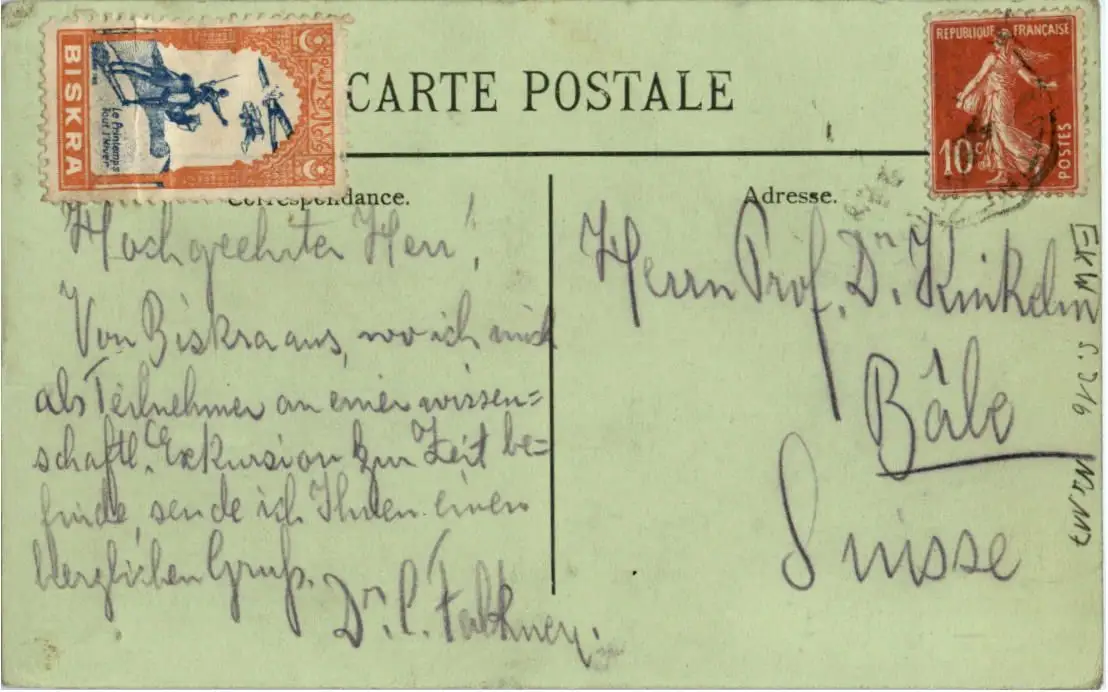 BISKRA
Le Printemps
tout l'Hiver
CARTE POSTALE
REPUBLIQUE FRANÇAISE
10c
POSTES
Correspondance.
Adresse.
Hochgeehrter Herr!
Von Biskra aus, wo ich mich
als Teilnehmer an einer wissen=
schaftl. Exkursion zur Zeit be=
finde, sende ich Ihnen einen
herzlichen Gruß.
Dr. C. Falkner.
Herrn Prof. Dr. Kinkelin
Bâle
Suisse
EKW S. 316 Nr. 117